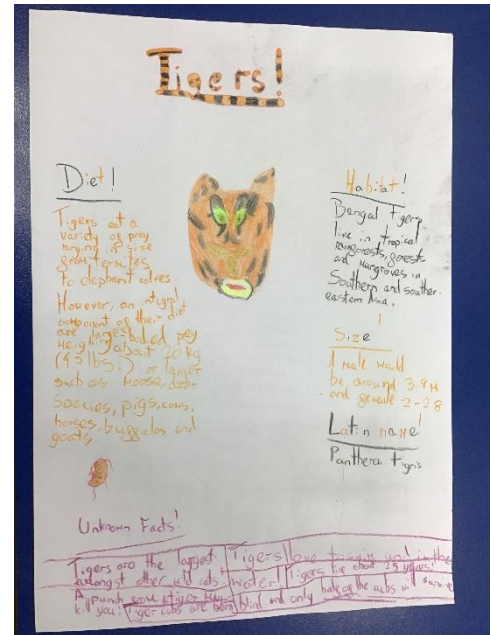 Tigers!
Diet!
Tigers eat a
variety of prey
ranging in size
from termites
to elephant calves.
However, an integral
component of their diet
are large-bodied prey
weighing about 20 kg
(45 lbs.) or larger
such as moose, deer
species, pigs, cows,
horses, buffalos and
goats
Habitat!
Bengal Tigers
live in tropical
rainforests, forests
and mangroves in
Southern and south-
eastern Asia.
Size!
A male would
be around 3.9 M
and female 2-2.8
Latin name!
Panthera tigris
Unknown Facts!
Tigers are the largest
amongst other wild cats!
Tigers love to swim and in the
water!
Tigers live about 25 years!
A punch you
kill you!
Tiger cubs are born blind and only half of the cubs survive